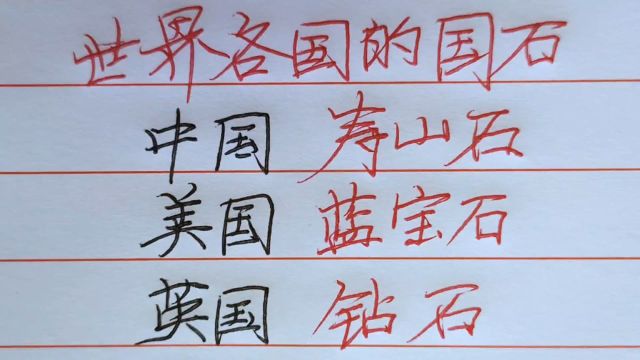 世界各国的国石
中国 寿山石
美国 蓝宝石
英国 钻石